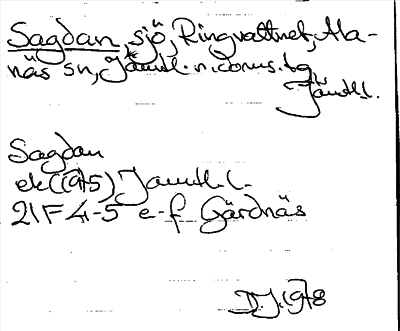 Sagdan, sjö, Ringvattnet, Ala-
näs sn, Jämtl. n. doms. tg,
Jämtl. l.
Sagdan
ek (1975) Jämtl. l.
21F 4-5 e-f Gärdnäs
D.J. 1978